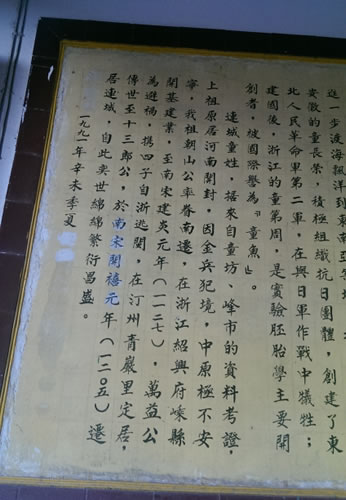 一步渡海飄洋到東南亞等
安徽的童長榮，積極組織抗日團體，創建了東
北人民革命軍第二軍，在與日軍作戰中犧牲；
建國後，浙江的童第周，是實驗胚胎學主要開
創者，被國際譽為『童魚』。
連城童姓，据來自童坊、峰市的資料考證，
上祖原居河南開封，因金兵犯境，中原極不安
寧，我祖朝山公率眷南遷，在浙江紹興府嵊縣
開基建業，至南宋建炎元年（一一二七），萬益公
為避禍，携四子自浙逃閩，在汀州青巖里定居，
傳世至十三郎公，於南宋開禧元年（一二〇五）遷
居連城，自此奕世綿綿繁衍昌盛。
一九九一年辛未季夏